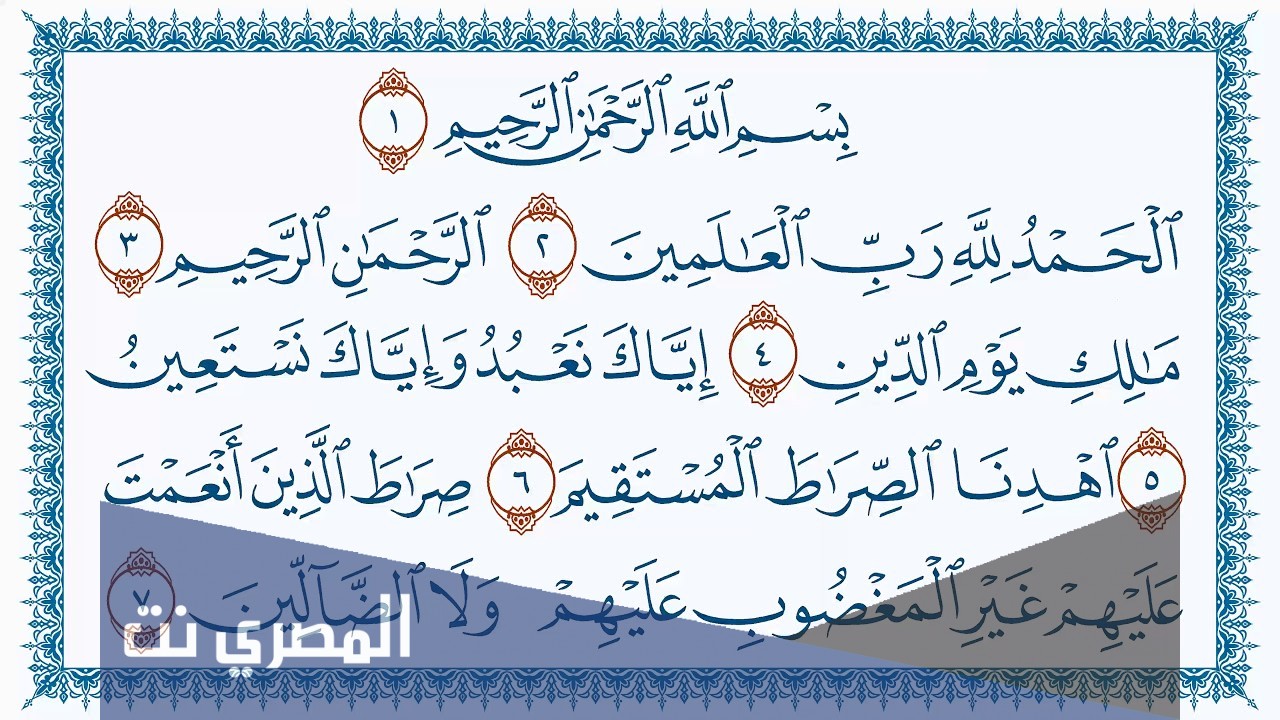 بِسْمِ ٱللَّهِ ٱلرَّحْمَٰنِ ٱلرَّحِيمِ ١
ٱلْحَمْدُ لِلَّهِ رَبِّ ٱلْعَٰلَمِينَ ٢ ٱلرَّحْمَٰنِ ٱلرَّحِيمِ ٣
مَٰلِكِ يَوْمِ ٱلدِّينِ ٤ إِيَّاكَ نَعْبُدُ وَإِيَّاكَ نَسْتَعِينُ
٥ ٱهْدِنَا ٱلصِّرَٰطَ ٱلْمُسْتَقِيمَ ٦ صِرَٰطَ ٱلَّذِينَ أَنْعَمْتَ
عَلَيْهِمْ غَيْرِ ٱلْمَغْضُوبِ عَلَيْهِمْ وَلَا ٱلضَّآلِّينَ ٧
المصري نت